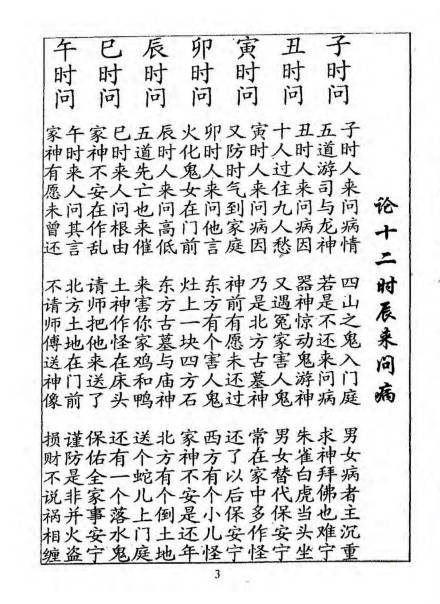 论十二时辰来问病
子时问
子时人来问病情 四山之鬼入门庭 男女病者主沉重
五道游司与龙神 若是不还来问病 求神拜佛也难宁
丑时问
丑时人来问病因 器神惊动鬼游神 朱雀白虎当头坐
十人过住九人愁 又遇冤家害人鬼 男女替代保安宁
寅时问
寅时人来问病因 乃是北方古墓神 常在家中多作怪
又防时气到家庭 神前有愿未还过 还了以后保安宁
卯时问
卯时人来问他言 东方有个害人鬼 西方有个小儿怪
火化鬼女在门前 灶上一块四方石 家神不安是还年
辰时问
辰时人来问高低 东方古墓与庙神 北方有个倒土地
五道先亡也来催 来害你家鸡和鸭 送个蛇儿上门庭
巳时问
巳时来人问根由 土神作怪在床头 还有一个落水鬼
家神不安在作乱 请师把他来送了 保佑全家事安宁
午时问
午时来人问其言 北方土地在门前 谨防是非并火盗
家神有愿未曾还 不请师傅送神像 损财不说祸相缠
3